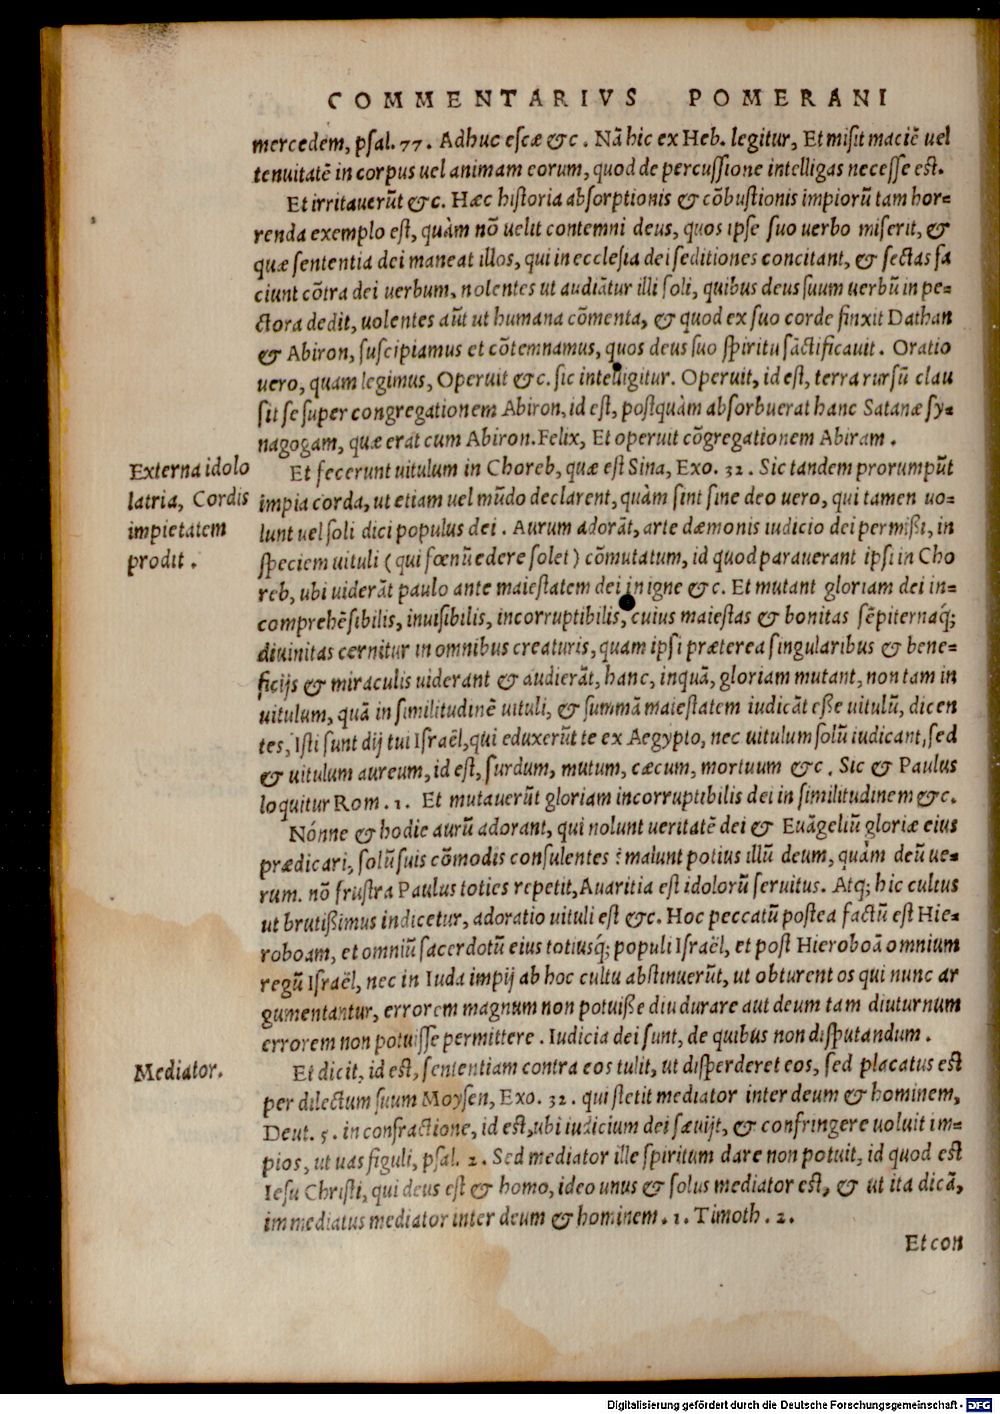 COMMENTARIVS POMERANI
mercedem, psal. 77. Adhuc escæ &c. Nã hic ex Heb. legitur, Et misit maciẽ uel
tenuitatẽ in corpus uel animam eorum, quod de percussione intelligas necesse est.
Et irritauerũt &c. Hæc historia absorptionis & cõbustionis impiorũ tam hor=
renda exemplo est, quàm nõ uelit contemni deus, quos ipse suo uerbo miserit, &
quæ sententia dei maneat illos, qui in ecclesia dei seditiones concitant, & sectas fa
ciunt cõtra dei uerbum, nolentes ut audiãtur illi soli, quibus deus suum uerbũ in pe=
ctora dedit, uolentes aũt ut humana cõmenta, & quod ex suo corde finxit Dathan
& Abiron, suscipiamus et cõtemnamus, quos deus suo spiritu sãctificauit. Oratio
uero, quam legimus, Operuit &c. sic intelligitur. Operuit, id est, terra rursũ clau
sit se super congregationem Abiron, id est, postquàm absorbuerat hanc Satanæ sy=
nagogam, quæ erat cum Abiron. Felix, Et operuit cõgregationem Abiram.
Externa idolo
latria, Cordis
impietatem
prodit.
Et fecerunt uitulum in Choreb, quæ est Sina, Exo. 32. Sic tandem prorumpũt
impia corda, ut etiam uel mũdo declarent, quàm sint sine deo uero, qui tamen uo=
lunt uel soli dici populus dei. Aurum adorãt, arte dæmonis iudicio dei permißi, in
speciem uituli (qui fœnũ edere solet) cõmutatum, id quod parauerant ipsi in Cho
reb, ubi uiderãt paulo ante maiestatem dei in igne &c. Et mutant gloriam dei in=
comprehẽsibilis, inuisibilis, incorruptibilis, cuius maiestas & bonitas sẽpiternaq́;
diuinitas cernitur in omnibus creaturis, quam ipsi præterea singularibus & bene=
ficijs & miraculis uiderant & audierãt, hanc, inquã, gloriam mutant, non tam in
uitulum, quã in similitudinẽ uituli, & summã maiestatem iudicãt eße uitulũ, dicen
tes, Isti sunt dij tui Israël, qui eduxerũt te ex Aegypto, nec uitulum solũ iudicant, sed
& uitulum aureum, id est, surdum, mutum, cæcum, mortuum &c. Sic & Paulus
loquitur Rom. 1. Et mutauerũt gloriam incorruptibilis dei in similitudinem &c.
Nónne & hodie aurũ adorant, qui nolunt ueritatẽ dei & Euãgeliũ gloriæ eius
prædicari, solũ suis cõmodis consulentes? malunt potius illũ deum, quàm deũ ue=
rum. nõ frustra Paulus toties repetit, Auaritia est idolorũ seruitus. Atq; hic cultus
ut brutißimus indicetur, adoratio uituli est &c. Hoc peccatũ postea factũ est Hie=
roboam, et omniũ sacerdotũ eius totiusq́; populi Israël, et post Hieroboã omnium
regũ Israël, nec in Iuda impij ab hoc cultu abstinuerũt, ut obturent os qui nunc ar
gumentantur, errorem magnum non potuiße diu durare aut deum tam diuturnum
errorem non potuisse permittere. Iudicia dei sunt, de quibus non disputandum.
Mediator.
Et dicit, id est, sententiam contra eos tulit, ut disperderet eos, sed placatus est
per dilectum suum Moysen, Exo. 32. qui stetit mediator inter deum & hominem,
Deut. 5. in confractione, id est, ubi iudicium dei sæuijt, & confringere uoluit im=
pios, ut uas figuli, psal. 2. Sed mediator ille spiritum dare non potuit, id quod est
Iesu Christi, qui deus est & homo, ideo unus & solus mediator est, & ut ita dicã,
immediatus mediator inter deum & hominem. 1. Timoth. 2.
Et con
Digitalisierung gefördert durch die Deutsche Forschungsgemeinschaft - DFG